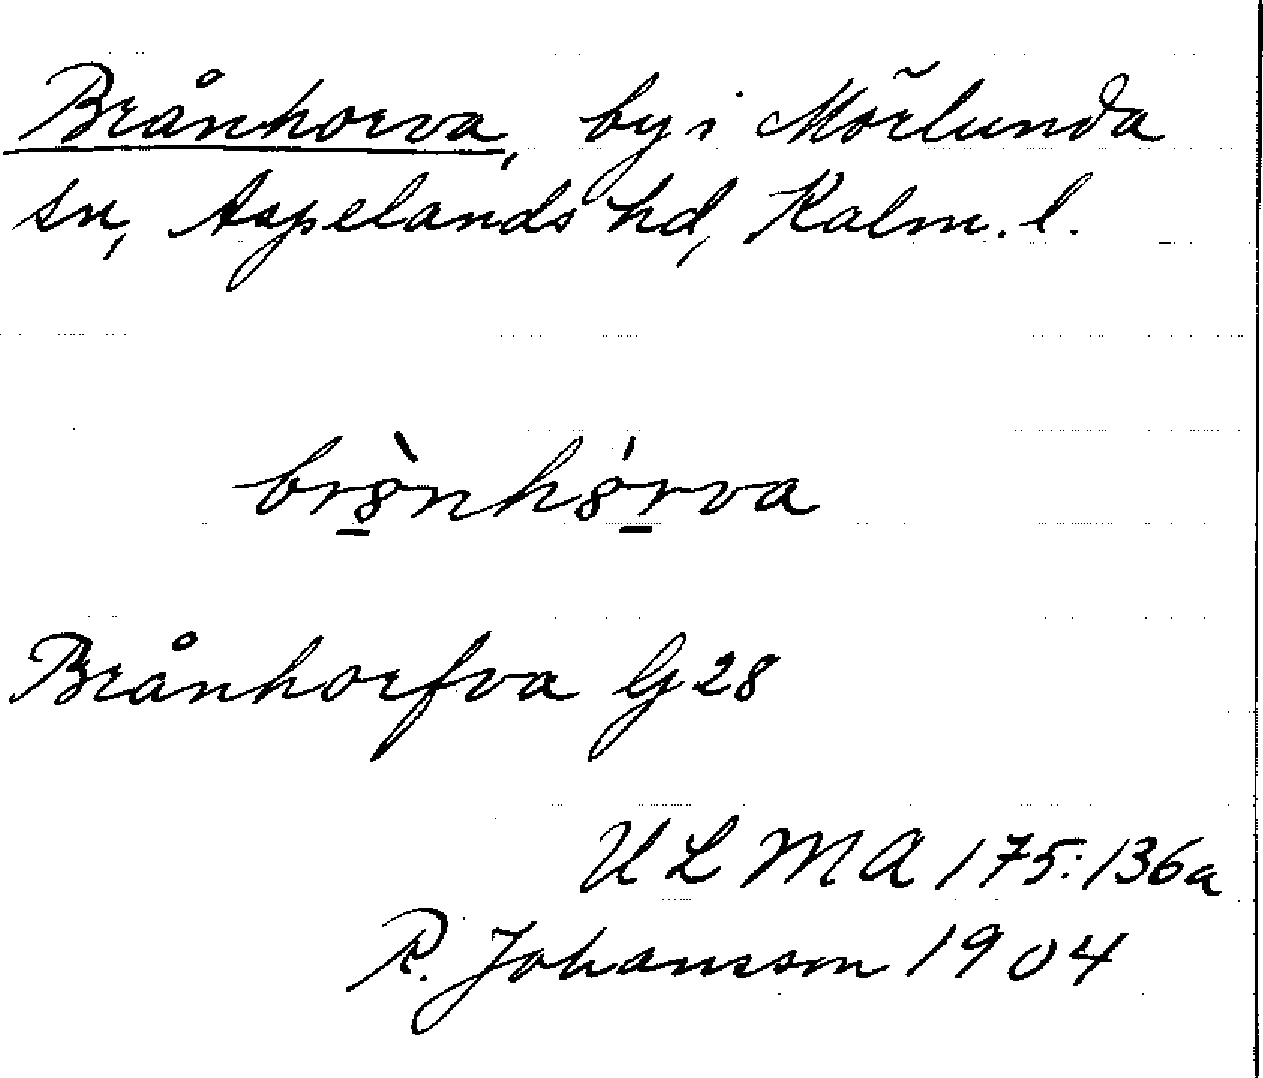 Brånhorva, by i Mörlunda
sn, Aspelands hd, Kalm. l.
Brånhorfva G 28
ULMA 175:136a
R. Johansson 1904